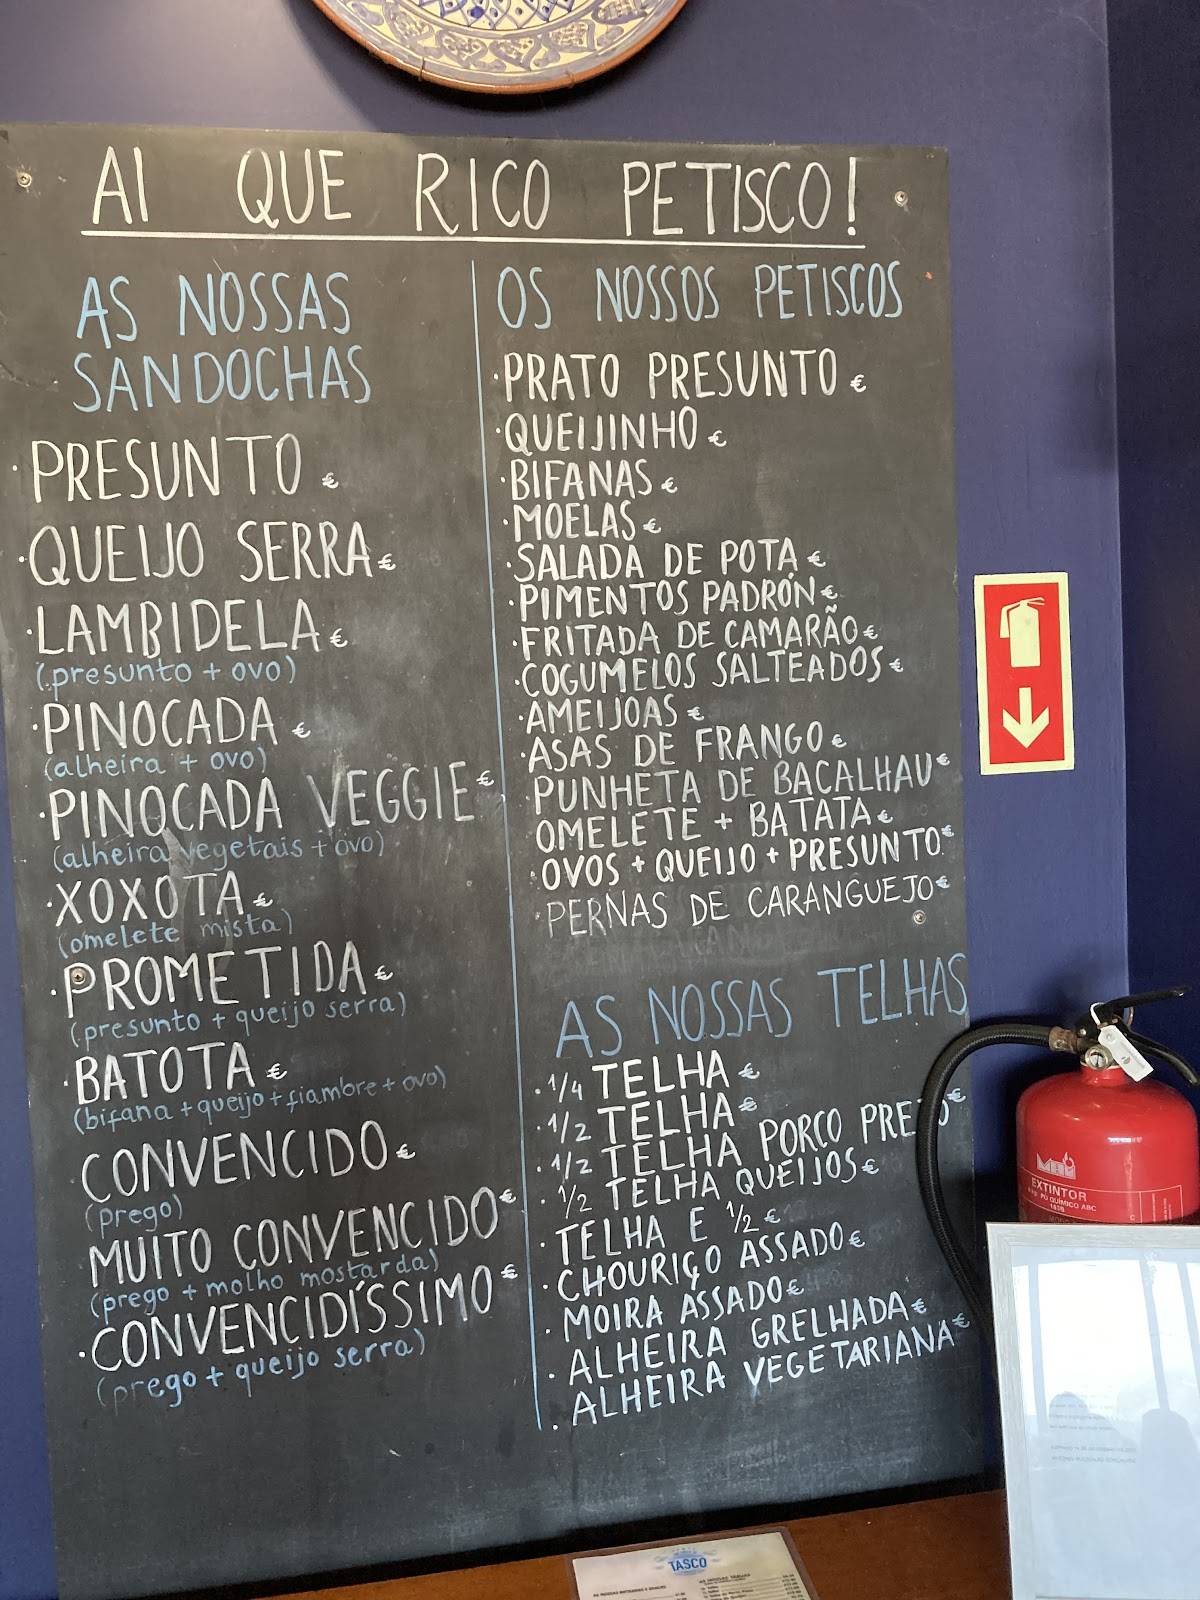 AI QUE RICO PETISCO!
AS NOSSAS
SANDOCHAS
·PRESUNTO €
·QUEIJO SERRA €
·LAMBIDELA €
(presunto + ovo)
·PINOCADA €
(alheira + ovo)
·PINOCADA VEGGIE €
(alheira vegetais + ovo)
·XOXOTA €
(omelete mista)
·PROMETIDA €
(presunto + queijo serra)
·BATOTA €
(bifana + queijo + fiambre + ovo)
CONVENCIDO €
(prego)
MUITO CONVENCIDO €
(prego + molho mostarda)
·CONVENCIDÍSSIMO €
(prego + queijo serra)
OS NOSSOS PETISCOS
·PRATO PRESUNTO €
·QUEIJINHO €
·BIFANAS €
·MOELAS €
·SALADA DE POTA €
·PIMENTOS PADRÓN €
·FRITADA DE CAMARÃO €
·COGUMELOS SALTEADOS €
·AMEIJOAS €
·ASAS DE FRANGO €
·PUNHETA DE BACALHAU €
OMELETE + BATATA €
·OVOS + QUEIJO + PRESUNTO €
·PERNAS DE CARANGUEJO €
AS NOSSAS TELHAS
·1/4 TELHA €
·1/2 TELHA €
·1/2 TELHA PORCO PRETO €
·1/2 TELHA QUEIJOS €
·TELHA E 1/2 €
·CHOURIÇO ASSADO €
·MOIRA ASSADO €
·ALHEIRA GRELHADA €
·ALHEIRA VEGETARIANA €
EXTINTOR
PÓ QUÍMICO ABC
TASCO